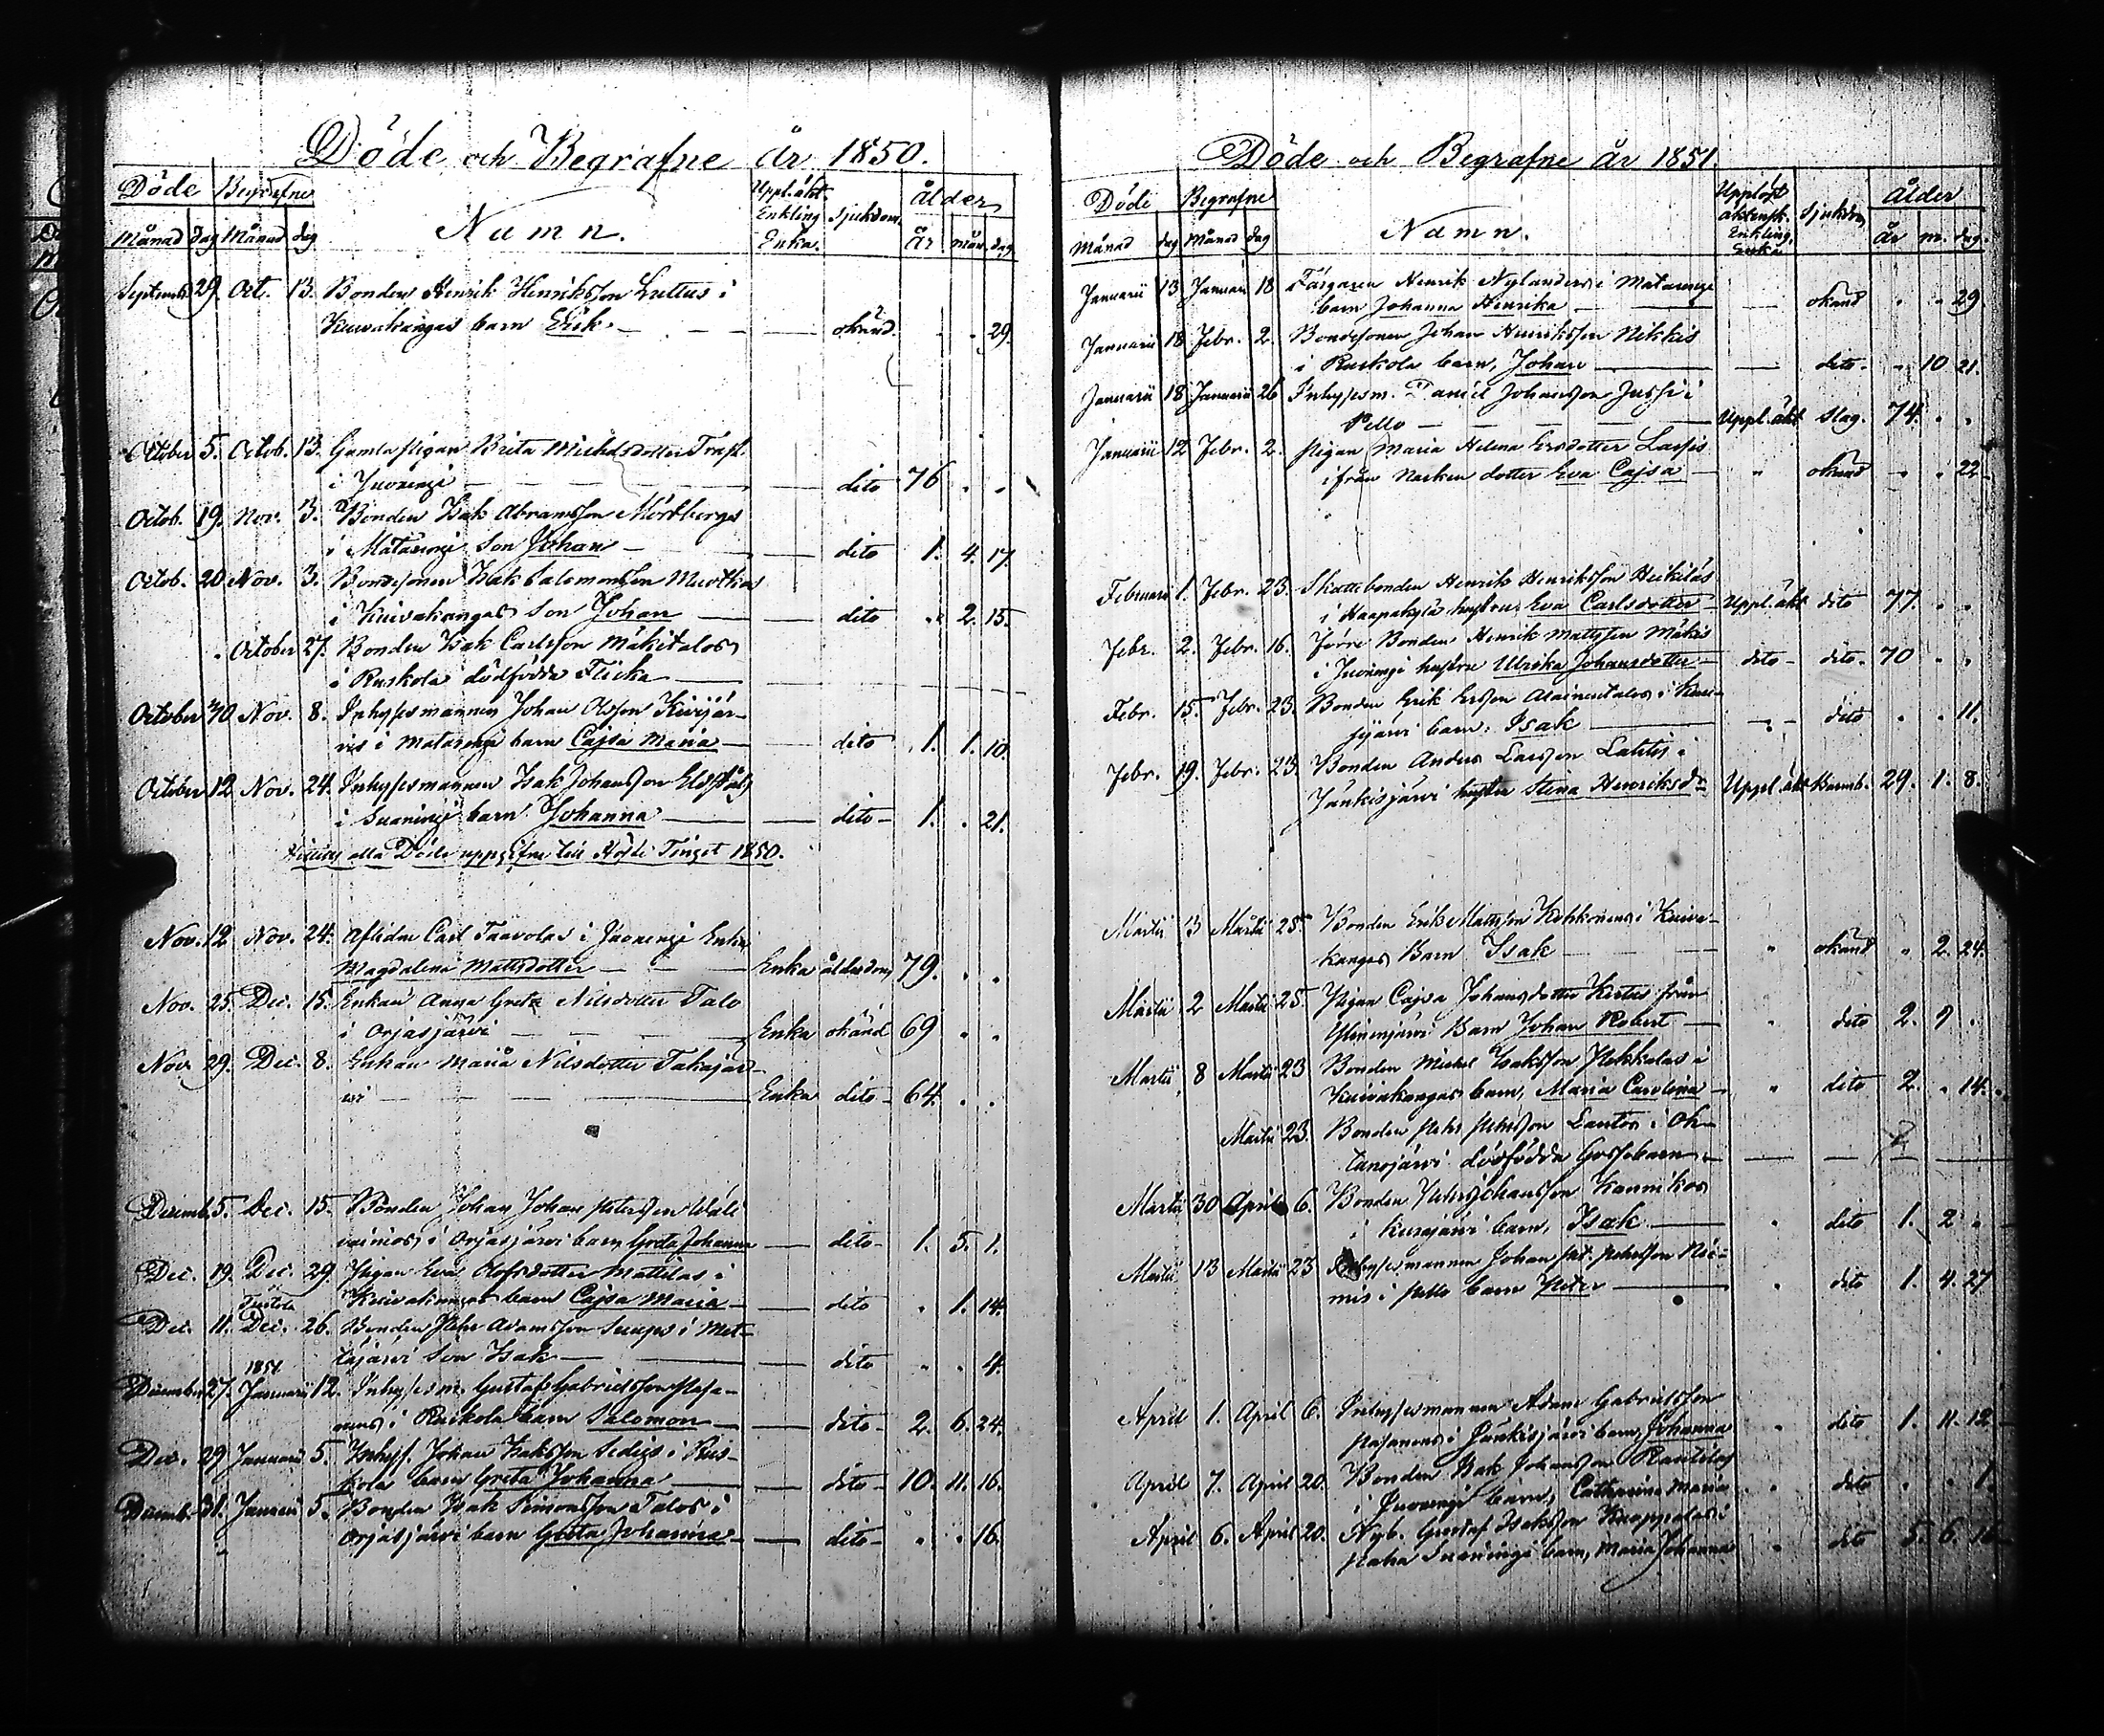 Döde och Begrafne år 1850.
Döde Begrafne Namn. Uppl. äkt. Enkling Enka. sjukdom. ålder
Månad dag Månad dag år mån. dag
Septemb. 29. Oct. 13. Bonden Henrik Henriksson i
Kuivakangas barn Erik. — okänd. . . 29.
October 5. Octob. 13. Gamla pigan Brita Michelsdotter
i Juoxengi — dito 76 . .
Octob. 19. Nov. 3. Bonden Isak Abramsson Mörtbergs
i Matarengi son Johan — dito 1. 4. 17.
Octob. 20 Nov. 3. Bondesonen Isak Salomonsson
i Kuivakangas son Johan — dito . 2. 15.
October 27. Bonden Isak Carlsson Mäkitalos
i Ruskola dödfödda Flicka —
October 10 Nov. 8. Inhysesmannen Johan Olsson Kivijär-
vis i Matarengi barn Cajsa Maria — dito 1. 1. 10.
October 12 Nov. 24. Inhysesmannen Isak Johansson
i barn Johanna — dito 1. . 21.
Hittills alla Döde uppgifne till Höste Tinget 1850.
Nov. 12 Nov. 24. Aflidne Carl Taavolas i Juoxengi Enka
Magdalena Mattsdotter — Enka ålderdom 79. . .
Nov. 25. Dec. 15. Enkan Anna Greta Nilsdotter Talo
i Orjasjärvi — Enka okänd 69 . .
Nov. 29. Dec. 8. Enkan Maria Nilsdotter
vi — Enka dito 64. . .
Decemb. 5. Dec. 15. Bonden Johan Johan Petersson
vainios i Orjasjärvi barn Greta Johanna — dito 1. 5. 1.
Dec. 19. Dec. 29. Pigan Eva Olofsdotter Mattilas i
Kuivakangas barn Cajsa Maria — dito . 1. 14.
Dec. 11. Dec. 26. Bonden Pehr Adamsson i Met-
tajärvi son Isak — dito . . 4.
1851
December 27. Januarii 12. Inhysesm. Gustaf Gabrielsson Pasa-
nens i Ruskola barn Salomon — dito 2. 6. 24.
Dec. 29 Januarii 5. Inhys. Johan Isaksson i Rus-
kola barn Greta Johanna — dito 10. 11. 16.
Decemb. 31. Januarii 5. Bonden Isak Simonsson Talos i
Orjasjärvi barn Greta Johanna — dito . . 16.
Döde och Begrafne år 1851.
Döde Begrafne Namn. Upplöst äktensk. Enkling, Enka sjukdom ålder
Månad dag Månad dag år m. dag.
Januarii 13 Januarii 18 Färgaren Henrik Nylanders i Matarengi
barn Johanna Henrika — okänd . . 29.
Januarii 18 Febr. 2. Bondesonen Johan Henriksson Nikkis
i Ruskola barn, Johan — dito. . 10 21.
Januarii 18 Januarii 26 Inhysesm. Daniel Johansson Jussi i
Pello — Uppl. äkt slag. 74. . .
Januarii 12 Febr. 2. Pigan Maria Helena Ersdotter Lassis
ifrån Narken dotter Eva Cajsa — okänd . . 22
Februari 1. Febr. 23. Skattebonden Henrik Henriksson Heikiläs
i Haapakylä hustru Eva Carlsdotter — Uppl. äkt dito 77. . .
Febr. 2. Febr. 16. Förre Bonden Henrik Matsson Mäkis
i Juoxengi hustru Ulrika Johansdotter — dito — dito. 70 . .
Febr. 15. Febr. 23. Bonden Erik Ersson i
järvi barn, Isak — dito . . 11.
Febr. 19. Febr. 23. Bonden Anders Larsson Lahtis i
Jänkisjärvi hustru Stina Henriksd:r Uppl. äkt Barnb. 29. 1. 8.
Martii 13 Martii 25. Bonden Erik Mattsson Kohkonens i Kuiva-
kangas Barn Isak — okänd . 2. 24.
Martii 2 Martii 25. Pigan Cajsa Johansdotter från
Barn Johan Robert — dito 2. 9 .
Martii 8 Martii 23 Bonden Michel Isaksson Pekkalas i
Kuivakangas barn, Maria Carolina — dito 2. . 14.
Martii 23. Bonden Pehr Pehrsson Lantos i Oh-
tanajärvi dödfödda Gossebarn. —
Martii 30 April 6. Bonden Pehr Johansson
i barn, Isak — dito 1. 2 .
Martii 13 Martii 23 Inhysesmannen Johan Pet. Pehrsson Nie-
mis i Pello barn Peter — dito 1. 4. 27
April 1. April 6. Inhysesmannen Adam Gabrielsson
Pasanens i Jänkisjärvi barn, Johanna dito 1. 11. 12
April 7. April 20. Bonden Isak Johansson Rautilas
i Juoxengi barn, Catharina Maria dito . . 1.
April 6. April 20. Nyb. Gustaf Isaksson i
barn, Maria Johanna dito 5. 6. 16